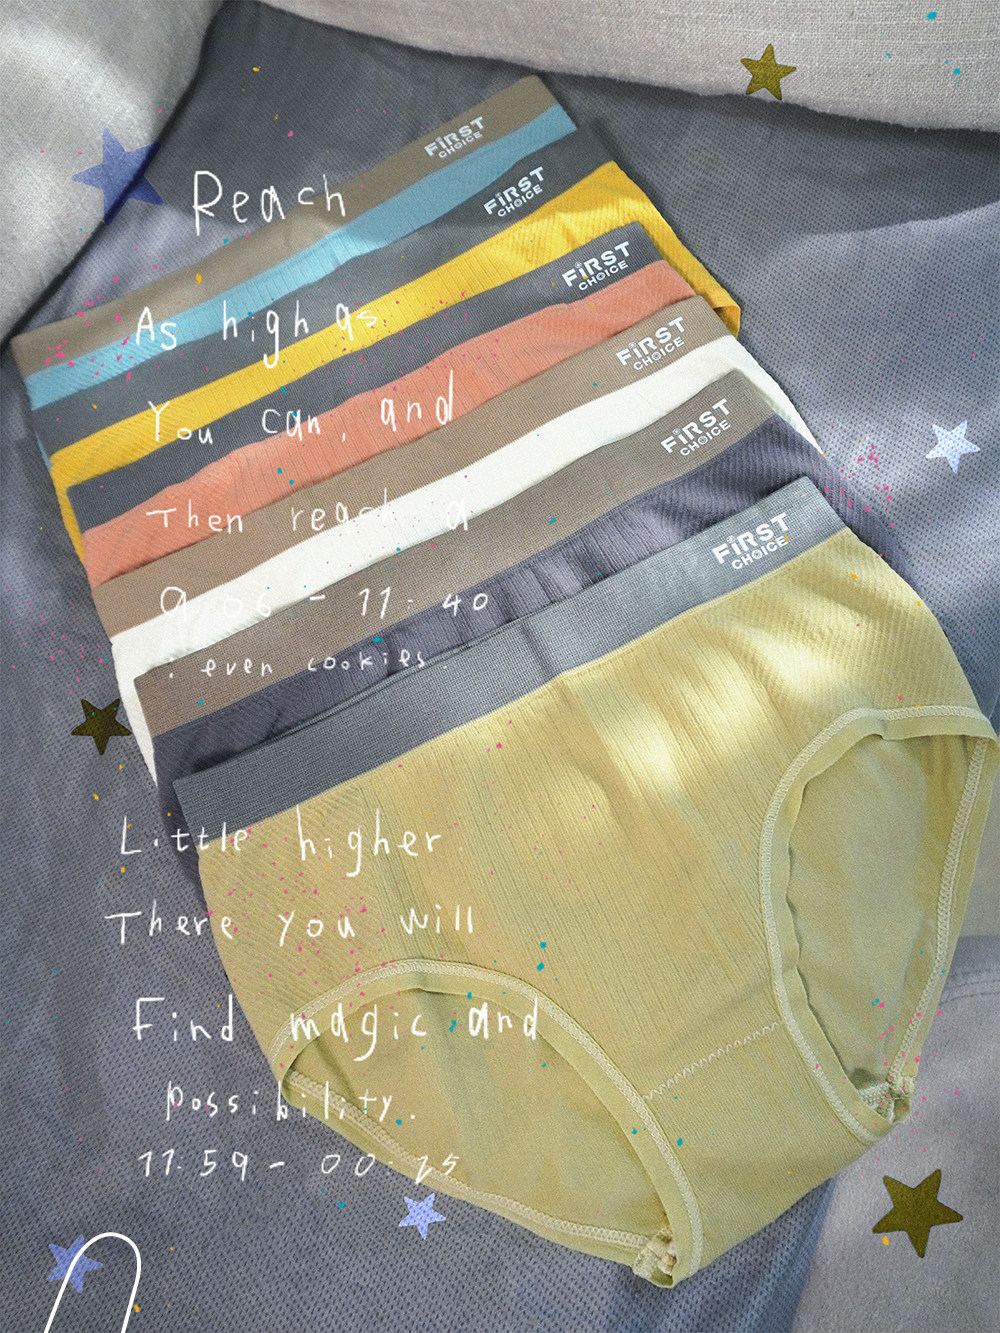 FiRST
CHOICE
FiRST
CHOICE
FiRST
CHOICE
FiRST
CHOICE
FiRST
CHOICE
FiRST
CHOICE
Reach
As high as
You can, and
Then reach a
9:06 - 11:40
: even cookies
Little higher.
There you will
Find magic and
possibility.
11:59 - 00:25